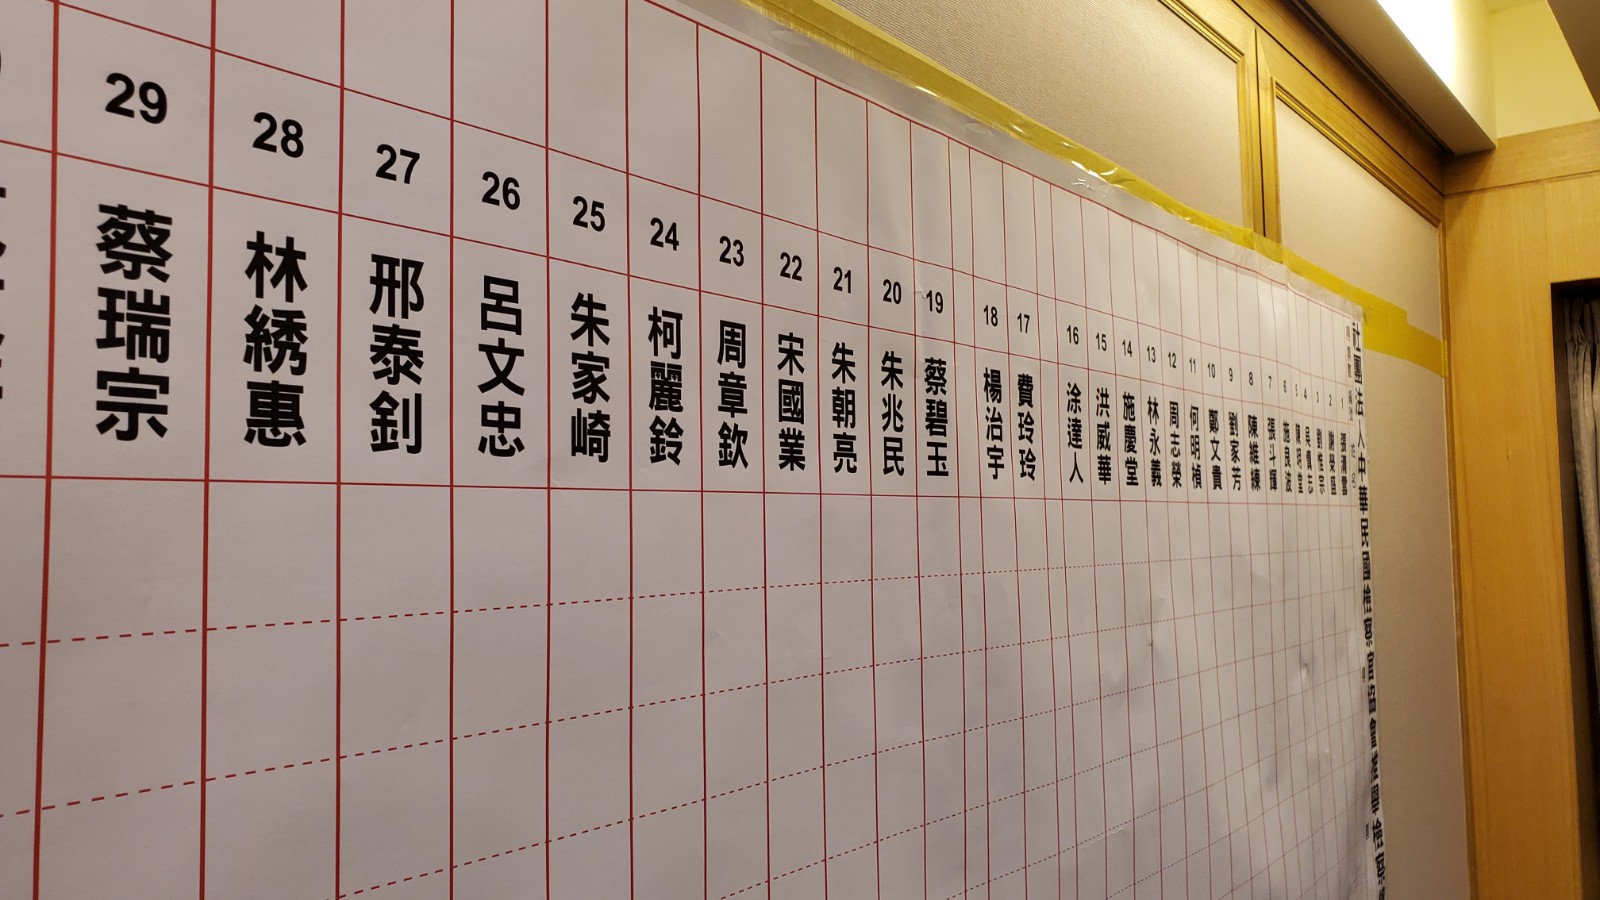 社團法人中華民國檢察官協會
1 張清雲
2 謝榮盛
3 劉惟宗
4 吳慎志
5 陳明堂
6 施良波
7 張斗輝
8 陳維練
9 劉家芳
10 鄭文貴
11 何明楨
12 周志榮
13 林永義
14 施慶堂
15 洪威華
16 涂達人
17 費玲玲
18 楊治宇
19 蔡碧玉
20 朱兆民
21 朱朝亮
22 宋國業
23 周章欽
24 柯麗鈴
25 朱家崎
26 呂文忠
27 邢泰釗
28 林綉惠
29 蔡瑞宗